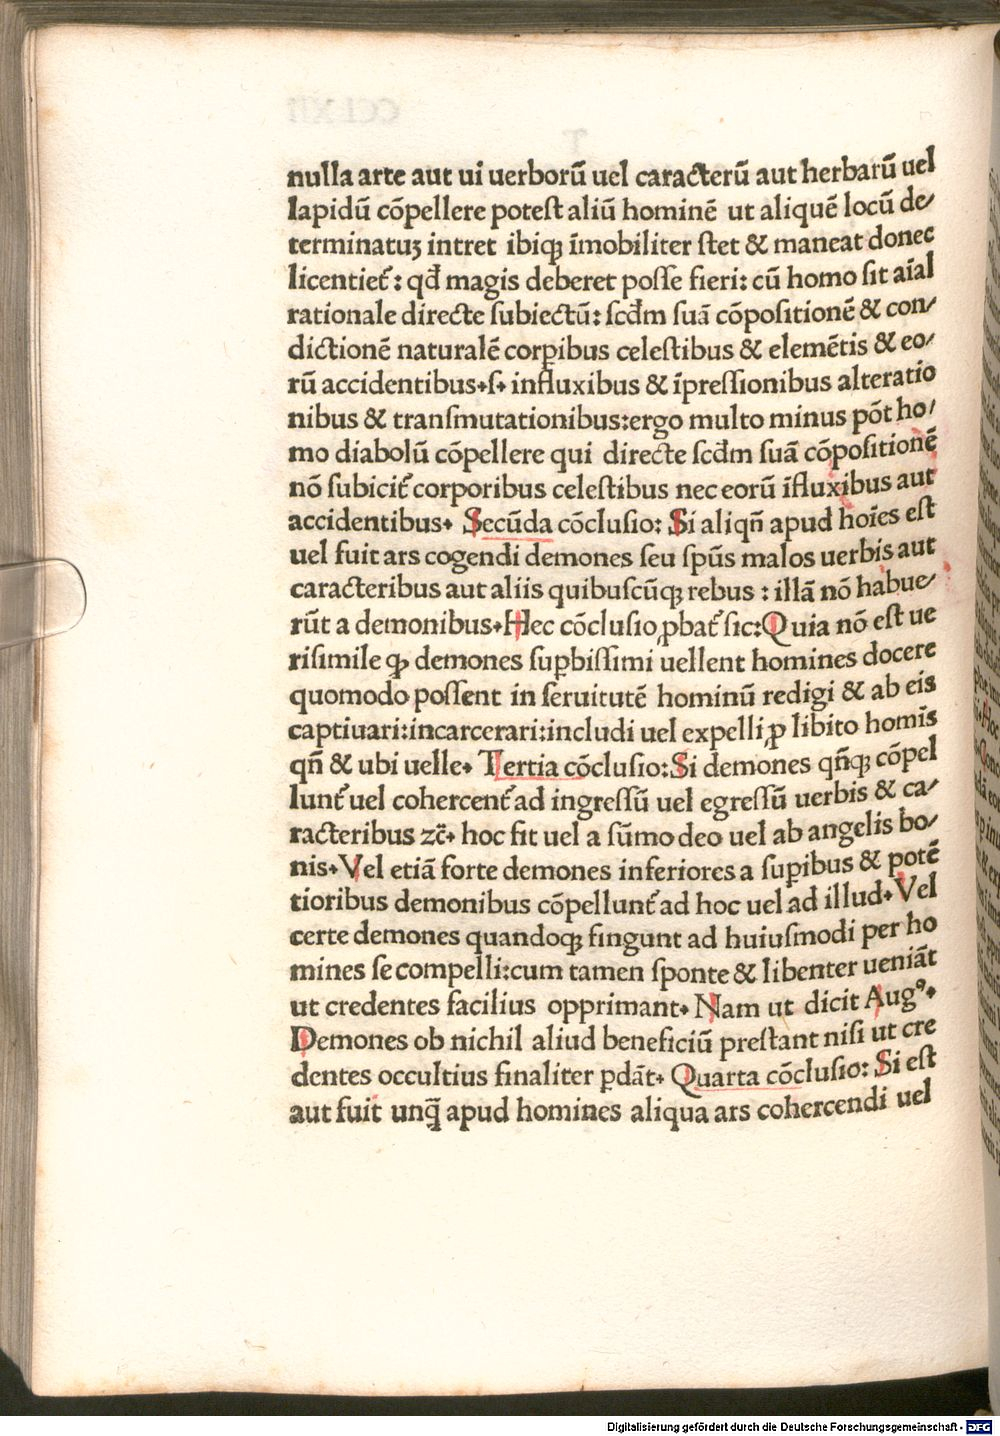 nulla arte aut ui uerborū uel caracterū aut herbarū uel
lapidū cōpellere poteſt aliū hominē ut aliquē locū de/
terminatuꝫ intret ibiqꝫ īmobiliter ſtet & maneat donec
licentiet᷑: qđ magis deberet poſſe fieri: cū homo ſit aīal
rationale directe ſubiectū: ſcđm ſuā cōpoſitionē & con/
dictionē naturalē corꝑibus celeſtibus & elemētis & eo/
rū accidentibus.ſ. influxibus & īpreſſionibus alteratio
nibus & tranſmutationibus:ergo multo minus pōt ho/
mo diabolū cōpellere qui directe ſcđm ſuā cōpoſitionē
nō ſubicit᷑ corporibus celeſtibus nec eorū īfluxibus aut
accidentibus. Secūda cōcluſio: Si aliqn̄ apud hoīes eſt
uel fuit ars cogendi demones ſeu ſpūs malos uerbis aut
caracteribus aut aliis quibuſcūqꝫ rebus : illā nō habue/
rūt a demonibus.Hec cōcluſio ꝓbat᷑ ſic:Quia nō eſt ue
riſimile ꝙ demones ſuꝑbiſſimi uellent homines docere
quomodo poſſent in ſeruitutē hominū redigi & ab eis
captiuari:incarcerari:includi uel expelli ꝓ libito homīs
qn̄ & ubi uelle. Tertia cōcluſio:Si demones qn̄qꝫ cōpel
lunt᷑ uel cohercent᷑ ad ingreſſū uel egreſſū uerbis & ca/
racteribus ꝛc̄. hoc fit uel a ſūmo deo uel ab angelis bo/
nis.Vel etiā forte demones inferiores a ſuꝑibus & potē
tioribus demonibus cōpellunt᷑ ad hoc uel ad illud.Vel
certe demones quandoqꝫ fingunt ad huiuſmodi per ho
mines ſe compelli:cum tamen ſponte & libenter ueniāt
ut credentes facilius opprimant. Nam ut dicit Augꝰ.
Demones ob nichil aliud beneficiū preſtant niſi ut cre
dentes occultius finaliter ꝑdāt. Quarta cōcluſio: Si eſt
aut fuit unꝗ̄ apud homines aliqua ars cohercendi uel
Digitalisierung gefördert durch die Deutsche Forschungsgemeinschaft - DFG